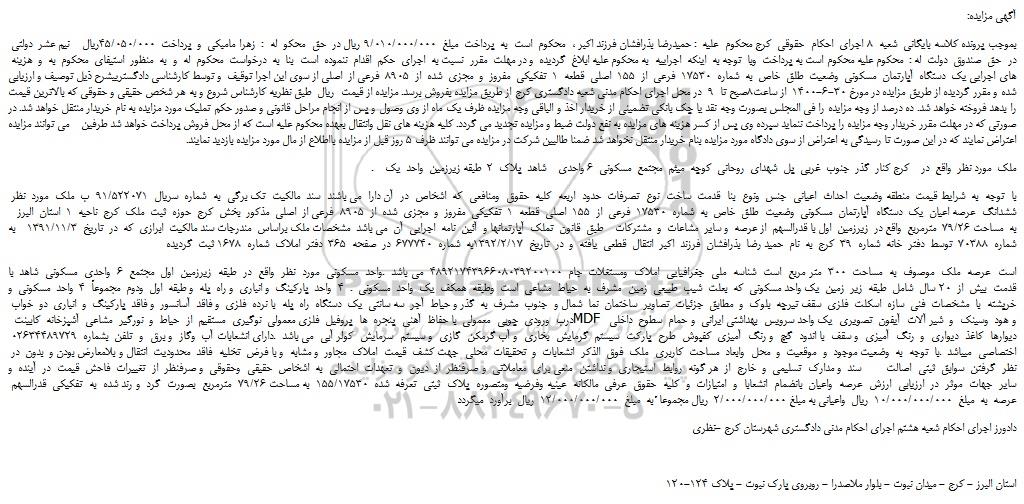 آگهی مزایده:
بموجب پرونده کلاسه بایگانی شعبه ۸ اجرای احکام حقوقی کرج محکوم علیه : حمیدرضا بذرافشان فرزند اکبر، محکوم است به پرداخت مبلغ ۹/۰۱۰/۰۰۰/۰۰۰ ریال در حق محکو له : زهرا مامیکی و پرداخت ۴۵/۰۵۰/۰۰۰ریال نیم عشر دولتی
در حق صندوق دولت له : محکوم علیه محکوم است به پرداخت وبا توجه به اینکه اجراییه به محکوم علیه ابلاغ گردیده و در مهلت مقرر نسبت به اجرای حکم اقدام ننموده است بنا به درخواست محکوم له و به منظور استیفای محکوم به و هزینه
های اجرایی یک دستگاه آپارتمان مسکونی وضعیت طلق خاص به شماره ۱۷۵۳۰ فرعی از ۱۵۵ اصلی قطعه ۱ تفکیکی مفروز و مجزی شده از ۸۹۰۵ فرعی از اصلی از سوی این اجرا توقیف و توسط کارشناسی دادگستریبشرح ذیل توصیف و ارزیابی
شده و مقرر گردیده از طریق مزایده در مورخ ۳۰-۶-۱۴۰۰ از ساعت۸صبح تا ۹ در محل اجرای احکام مدنی شعبه دادگستری کرج از طریق مزایده بفروش برسد. مزایده از قیمت ریال طبق نظریه کارشناس شروع و به هر شخص حقیقی و حقوقی که بالاترین قیمت
را بدهد فروخته خواهد شد. ده درصد از وجه مزایده را فی المجلس بصورت وجه نقد یا چک بانکی تضمینی از خریدار اخذ و الباقی وجه مزایده ظرف یک ماه از وی وصول و پس از انجام مراحل قانونی و صدور حکم تملیک مورد مزایده به نام خریدار منتقل خواهد شد. در
صورتی که در مهلت مقرر خریدار وجه مزایده را پرداخت ننماید سپرده وی پس از کسر هزینه های مزایده به نفع دولت ضبط و مزایده تجدید می گردد. کلیه هزینه های نقل وانتقال بعهده محکوم علیه است که از محل فروش پرداخت خواهد شد طرفین می توانند مزایده
اعتراض نمایند که در این صورت تا رسیدگی به اعتراض از سوی دادگاه مورد مزایده بنام خریدار منتقل نخواهد شد ضمنا طالبین شرکت در مزایده می توانند ظرف ۵ روز قبل از مزایده بااطلاع از مال مورد مزایده بازدید نمایند.
ملک مورد نظر واقع در کرج کنار گذر جنوب غربی پل شهدای روحانی کوچه میثم مجتمع مسکونی ۶ واحدی شاهد پلاک ۲ طبقه زیرزمین واحد یک .
با توجه به شرایط قیمت منطقه وضعیت احداث اعیانی جنس ونوع بنا قدمت ساخت نوع تصرفات حدود اربعه کلیه حقوق ومنافعی که اشخاص در آن دارا می باشند سند مالکیت تک برگی به شماره سریال ۹۱/۵۲۲۰۷۱ ب ملک مورد نظر
ششدانگ عرصه اعیان یک دستگاه آپارتمان مسکونی وضعیت طلق خاص به شماره ۱۷۵۳۰ فرعی از ۱۵۵ اصلی قطعه ۱ تفکیکی مفروز و مجزی شده از ۸۹۰۵ فرعی از اصلی مذکور بخش کرج حوزه ثبت ملک کرج ناحیه ۱ استان البرز
به مساحت ۷۹/۲۶ مترمربع واقع در زیرزمین اول با قدرالسهم از عرصه و سایر مشاعات و مشترکات طبق قانون تملک آپارتمانها و آئین نامه اجرایی آن می باشد مشخصات ملک براساس مندرجات سند مالکیت ابرازی که در تاریخ ۱۳۹۱/۱۱/۳ به
شماره ۷۰۳۸۸ توسط دفتر خانه شماره ۳۹ کرج به نام حمید رضا بذرافشان فرزند اکبر انتقال قطعی یافته و در تاریخ ۱۳۹۲/۲/۱۷به شماره ۶۷۷۷۴۰ در صفحه ۳۶۵ دفتر املاک شماره ۱۶۷۸ ثبت گردیده
است عرصه ملک موصوف به مساحت ۳۰۰ متر مربع است شناسه ملی جغرافیایی املاک ومستغلات جام ۴۸۹۲۱۷۴۳۹۶۶۰۸۰۳۹۲۰۰۱۰۰ می باشد .واحد مسکونی مورد نظر واقع در طبقه زیرزمین اول مجتمع ۶ واحدی مسکونی شاهد با
قدمت بیش از ۲۰ سال شامل طبقه زیر زمین یک واحد مسکونی که بعلت شیب طبیعی زمین مشرف به حیاط مشاعی است وطبقه همکف یک واحد مسکونی . ۴ واحد پارکینگ و انباری و راه پله و طبقه اول ودوم مجموعاً ۴ واحد مسکونی و
خرپشته با مشخصات فنی سازه اسکلت فلزی سقف تیرچه بلوک و مطابق جزئیات تصاویر ساختمان نما شمال و جنوب مشرف به گذر و حیاط آجر سه سانتی یک دستگاه راه پله با نرده فلزی و فاقد آسانسور و فاقد پارکینگ و انباری دو خواب
و هود وسینک و شیر آلات آیفون تصویری یک واحد سرویس بهداشتی ایرانی و حمام سطوح داخلی MDFدرب ورودی چوبی معمولی با حفاظ آهنی پنجره ها پروفیل فلزی معمولی نوگیری مستقیم از حیاط و نورگیر مشاعی آشپزخانه کابینت
دیوارها کاغذ دیواری و رنگ آمیزی و سقف با اندود گچ و رنگ آمیزی کفپوش طرح پارکت سیستم گرمایش بخاری و آب گرمکن گازی و سیستم سرمایش کولر آبی می باشد .دارای انشعابات آب وگاز و برق و تلفن بشماره ۰۲۶۳۴۴۸۹۷۲۹
اختصاصی میباشد .با توجه به وضعیت موجود و موقعیت و محل وابعاد مساحت کاربری ملک فوق الذکر انشعابات و تحقیقات محلی جهت کشف قیمت املاک مجاور و مشابه و با فرض تخلیه فاقد محدودیت انتقال و بلامعارض بودن و بدون در
نظر گرفتن سوابق ثبتی اصالت سند و مدارک تسلیمی و خارج از هر گونه روابط استیجاری و نداشتن منعی برای معاملاتی و صرفنظر از دیون و تعهدات احتمالی به اشخاص حقیقی وحقوقی و صرفنظر از تغییرات فاحش قیمت در آینده و
سایر جهات موثر در ارزیابی ارزش عرصه واعیان بانضمام انشعابا و امتیازات و کلیه حقوق عرفی مالکانه عینیه وفرضیه ومتصوره پلاک ثبتی تعرفه شده ۱۵۵/۱۷۵۳۰ به مساحت ۷۹/۲۶ مترمربع بصورت گرد و رند شده به تفکیکی قدرالسهم
عرصه به مبلغ ۱۰/۰۰۰/۰۰۰/۰۰۰ ریال واعیانی به مبلغ ۲/۰۰۰/۰۰۰/۰۰۰ ریال مجموعا ًبه مبلغ ۱۲/۰۰۰/۰۰۰/۰۰۰ ریال برآورد میگردد
دادورز اجرای احکام شعبه هشتم اجرای احکام مدنی دادگستری شهرستان کرج -نظری
استان البرز - کرج - میدان نبوت - بلوار ملاصدرا - روبروی پارک نبوت - پلاک ۱۲۴-۱۲۰
۰۲۱-۸۸۳۴۹۶۷۰-۵